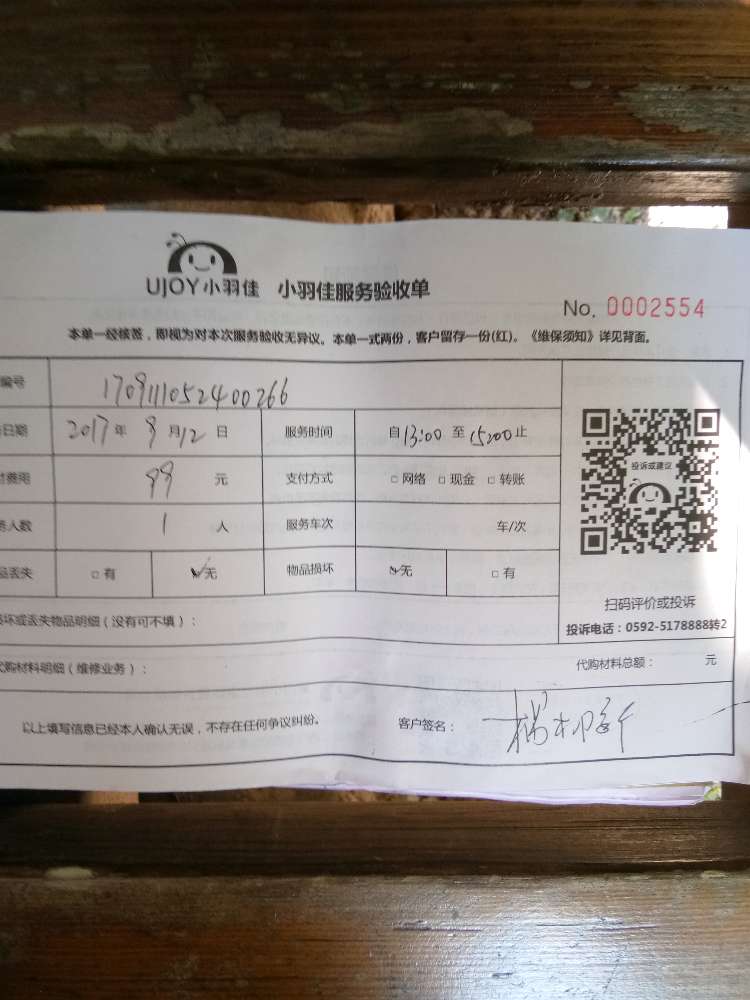 UJOY小羽佳 小羽佳服务验收单
No. 0002554
本单一经核签，即视为对本次服务验收无异议。本单一式两份，客户留存一份(红)。《维保须知》详见背面。
编号 1709111052400266
日期 2017年 9月12日 服务时间 自13:00至15:00止
费用 99 元 支付方式 □网络 □现金 □转账
人数 1 人 服务车次 车/次
丢失 □有 ✓无 物品损坏 ✓无 □有
投诉或建议
扫码评价或投诉
投诉电话：0592-5178888转2
坏或丢失物品明细（没有可不填）：
购材料明细（维修业务）：
代购材料总额： 元
以上填写信息已经本人确认无误，不存在任何争议纠纷。 客户签名：